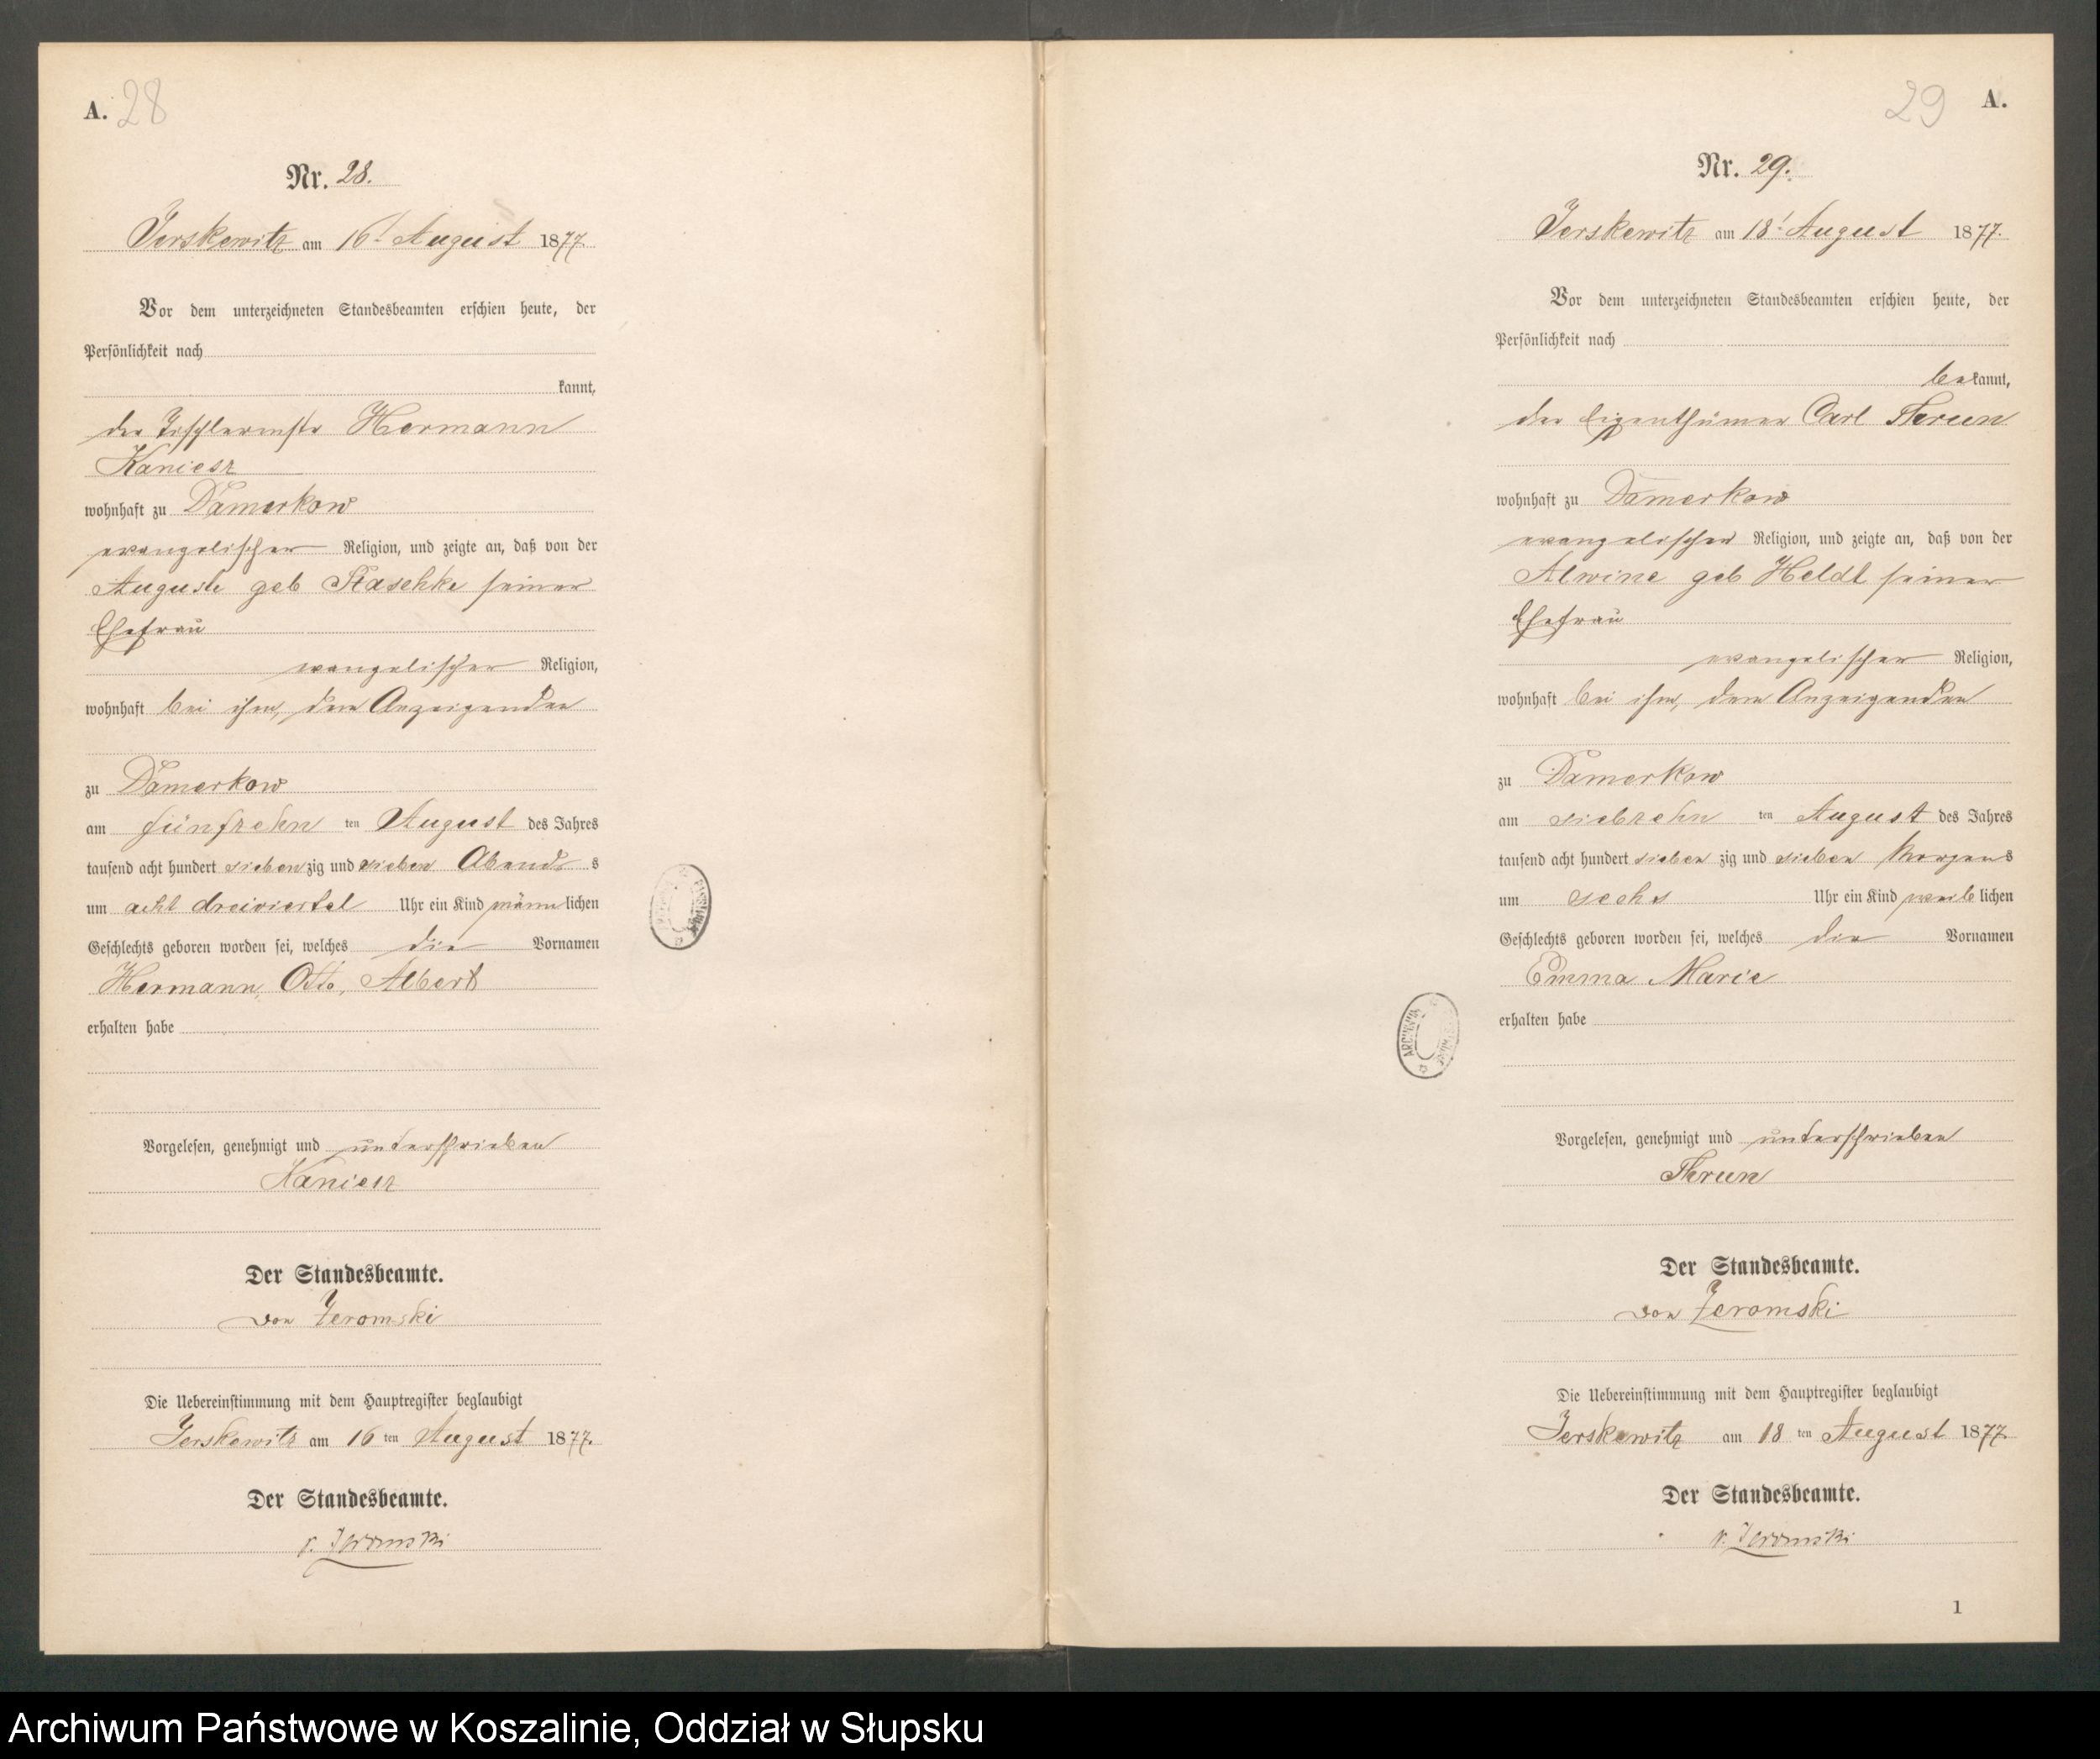 A. 28
Nr. 28.
Jerskewitz am 16t August 1877.
Vor dem unterzeichneten Standesbeamten erschien heute, der
Persönlichkeit nach
kannt,
der Tischlermstr Hermann
Kaniesz
wohnhaft zu Damerkow
evangelischer Religion, und zeigte an, daß von der
Auguste geb Staschke seiner
Ehefrau
evangelischer Religion,
wohnhaft bei ihm, dem Anzeigenden
zu Damerkow
am fünfzehn ten August des Jahres
tausend acht hundert siebenzig und sieben Abends s
um acht dreiviertel Uhr ein Kind männlichen
Geschlechts geboren worden sei, welches die Vornamen
Hermann, Otto, Albert
erhalten habe
Vorgelesen, genehmigt und unterschrieben
Kaniesz
Der Standesbeamte.
von Zeromski
Die Uebereinstimmung mit dem Hauptregister beglaubigt
Jerskewitz am 16 ten August 1877.
Der Standesbeamte.
v. Zeromski
29 A.
Nr. 29.
Jerskewitz am 18t August 1877.
Vor dem unterzeichneten Standesbeamten erschien heute, der
Persönlichkeit nach
bekannt,
der Eigenthümer Carl Thrun
wohnhaft zu Damerkow
evangelischer Religion, und zeigte an, daß von der
Alwine geb Heldt seiner
Ehefrau
evangelischer Religion,
wohnhaft bei ihm, dem Anzeigenden
zu Damerkow
am siebzehn ten August des Jahres
tausend acht hundert sieben zig und sieben Morgens
um sechs Uhr ein Kind weiblichen
Geschlechts geboren worden sei, welches die Vornamen
Emma Marie
erhalten habe
Vorgelesen, genehmigt und unterschrieben
Thrun
Der Standesbeamte.
von Zeromski
Die Uebereinstimmung mit dem Hauptregister beglaubigt
Jerskewitz am 18 ten August 1877.
Der Standesbeamte.
v. Zeromski
1
Archiwum Państwowe w Koszalinie, Oddział w Słupsku